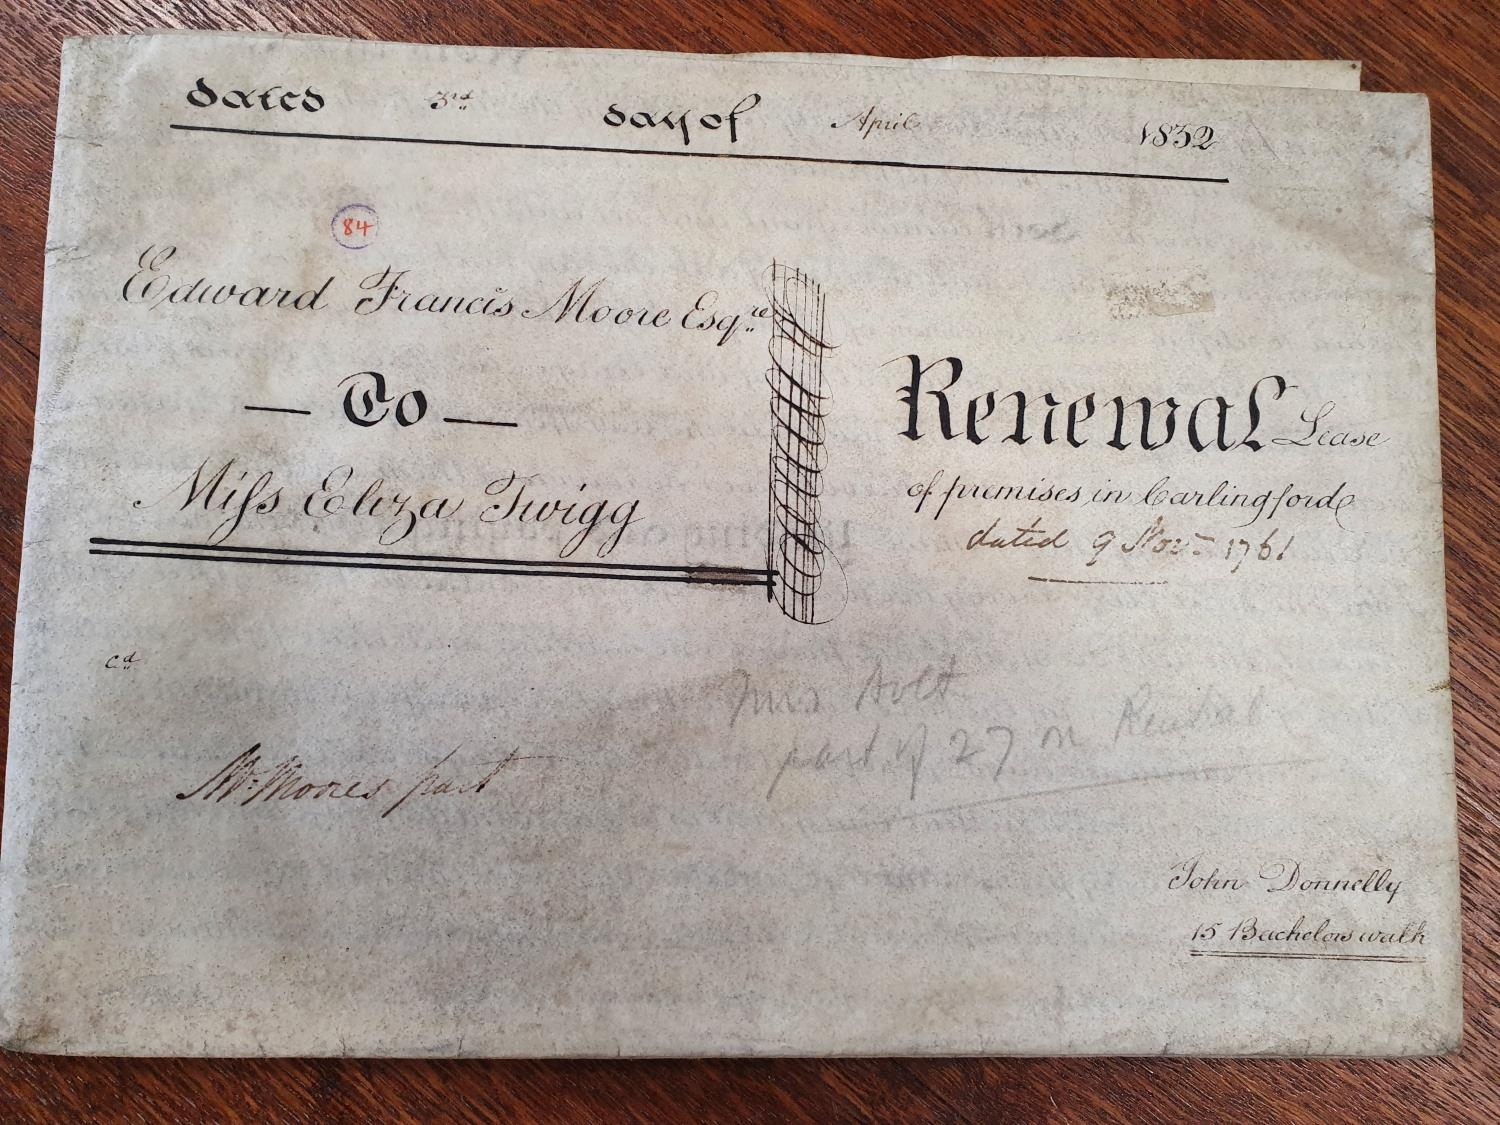 dated 3rd day of April 1852
84
Edward Francis Moore Esqre
To
Miss Eliza Twigg
Renewal Lease
of premises in Carlingford
dated 9 Novr 1761
Cd
Mr Moores part
Mrs
part of 27 on Rental
John Donnelly
15 Bachelors walk